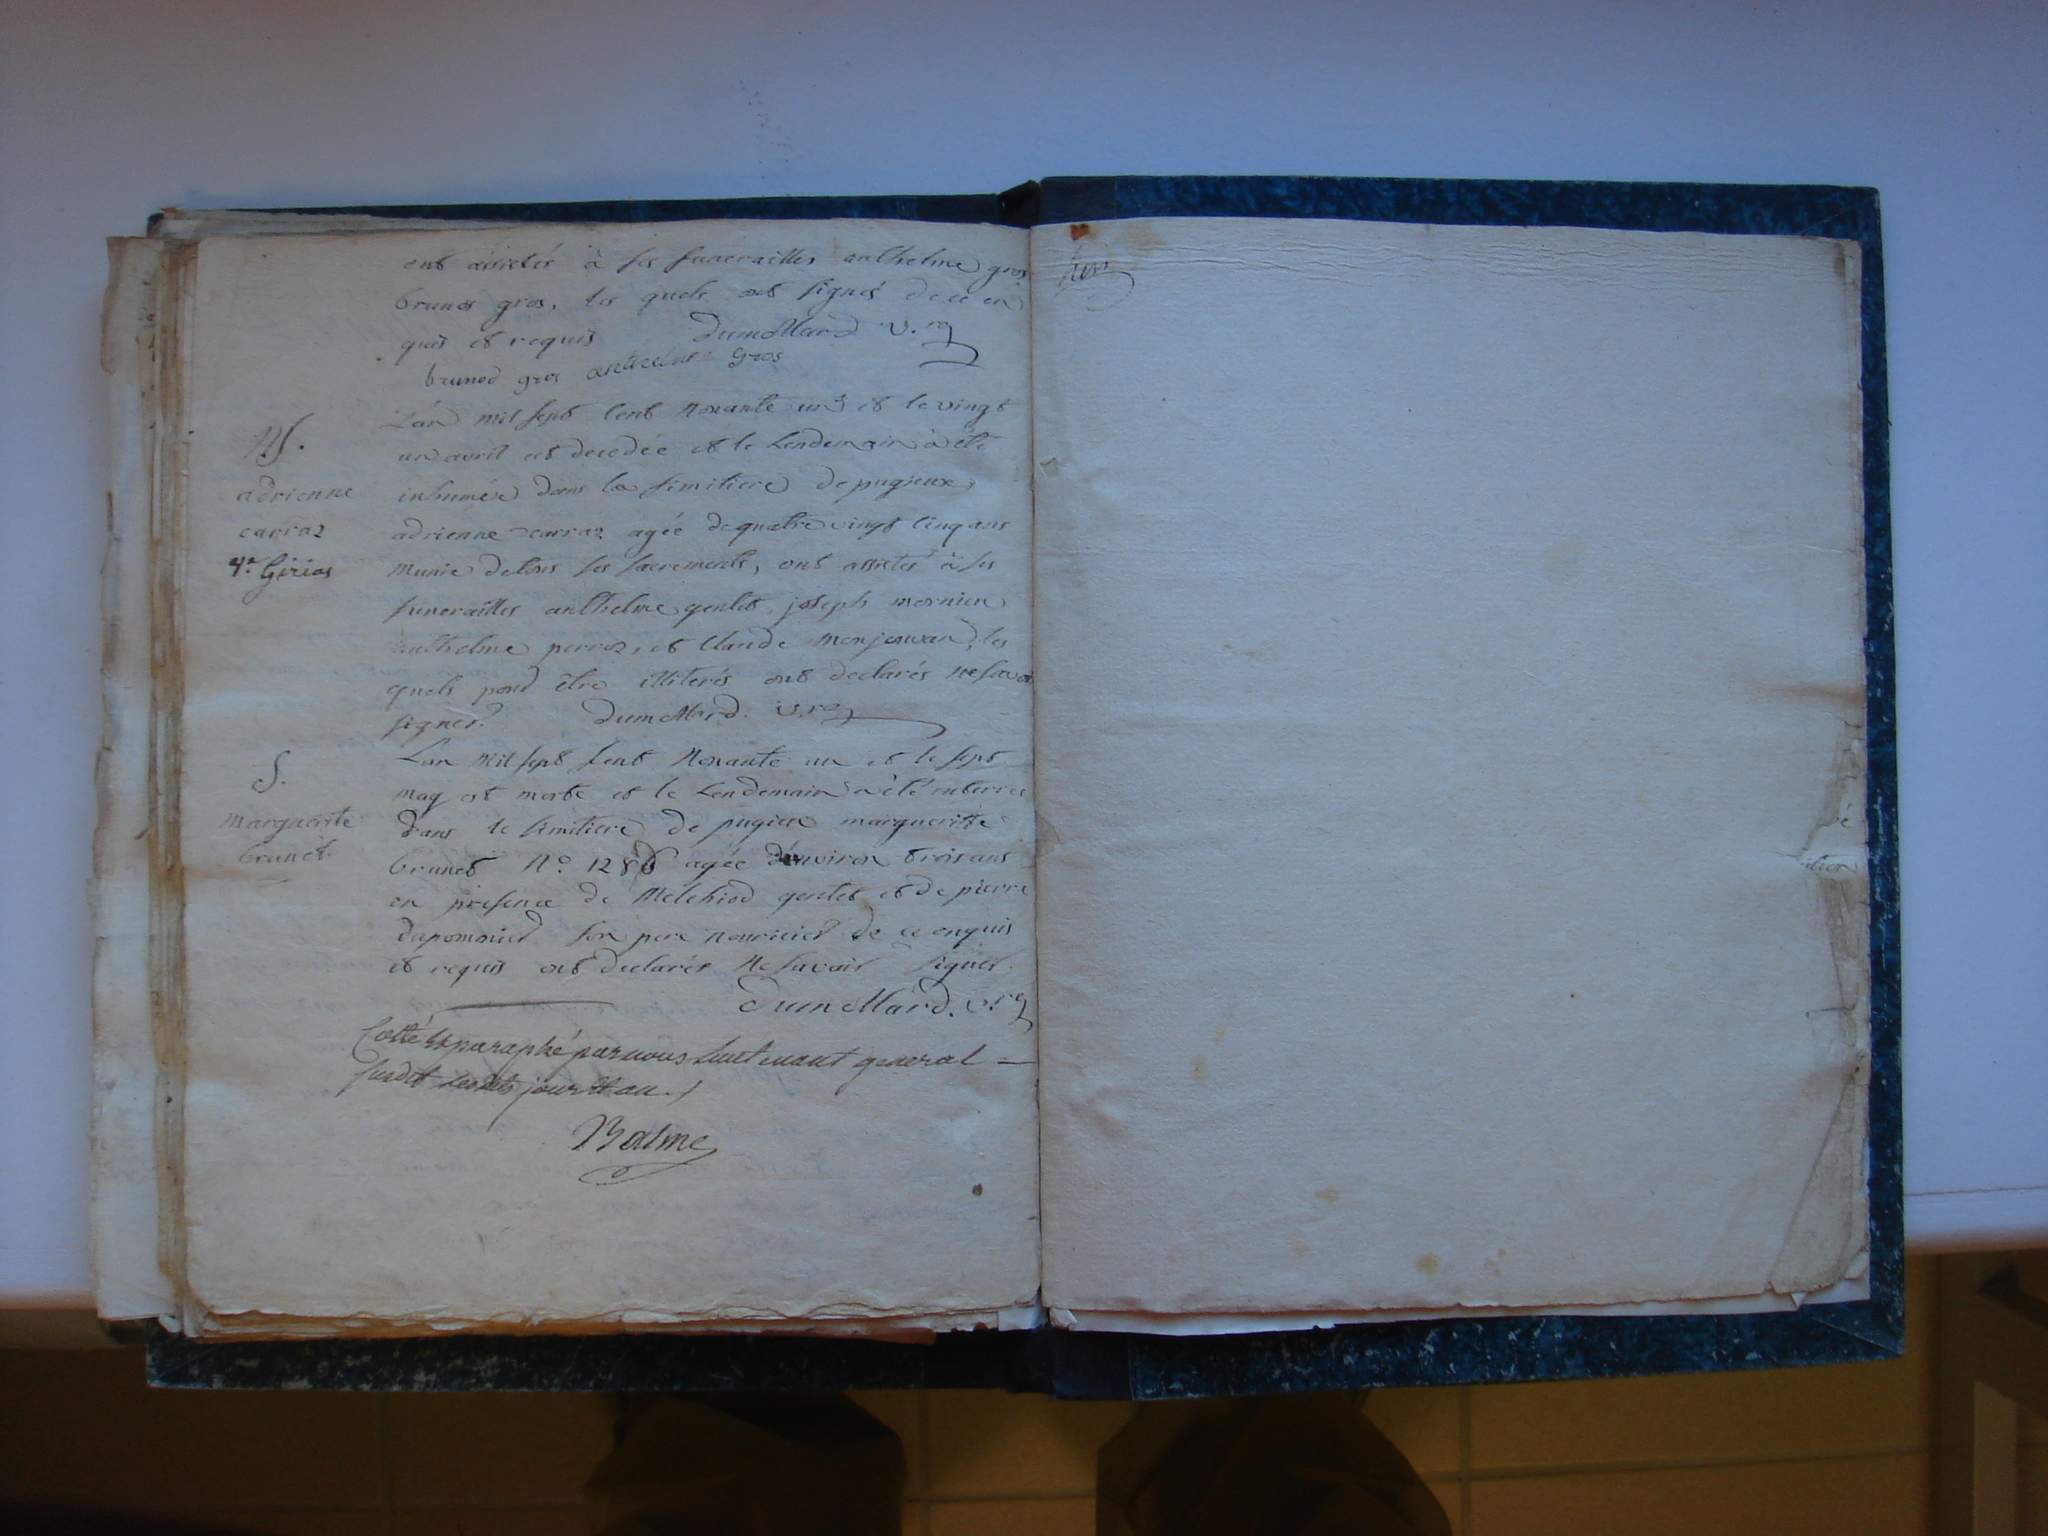 ont assistés à ses funerailles anthelme gros
brunod gros, les quels ont signés de ce en
quis et requis Dumollard v.re
brunod gros anthelme gros
L'an mil sept cent nonante un et le vingt
un avril est decedée et le lendemain a été
M S.
adrienne
carraz
inhumée dans la simitiere de pugieux
adrienne carraz agée de quatre vingt cinq ans
munie de tous ses sacrements, ont assistés à ses
funerailles anthelme gentet, joseph mornieu
anthelme perraz, et Claude monjouvan, les
quels pour être illiterés ont declarés ne savoir
signer. Dumollard v.re
L'an mil sept cent nonante un et le sept
S.
marguerite
brunet.
may est morte et le lendemain a été enterrée
dans le simitiere de pugieu marguerite
brunet N.o 1286 agée d'environ trois ans
en presence de Melchiod gentet et de pierre
dupommier son pere nouricier de ce enquis
et requis ont declarés ne savoir signer.
Dumollard. v.re
Cotté et paraphé par nous lieutenant general
susdit lesdits jour et an.
Balme